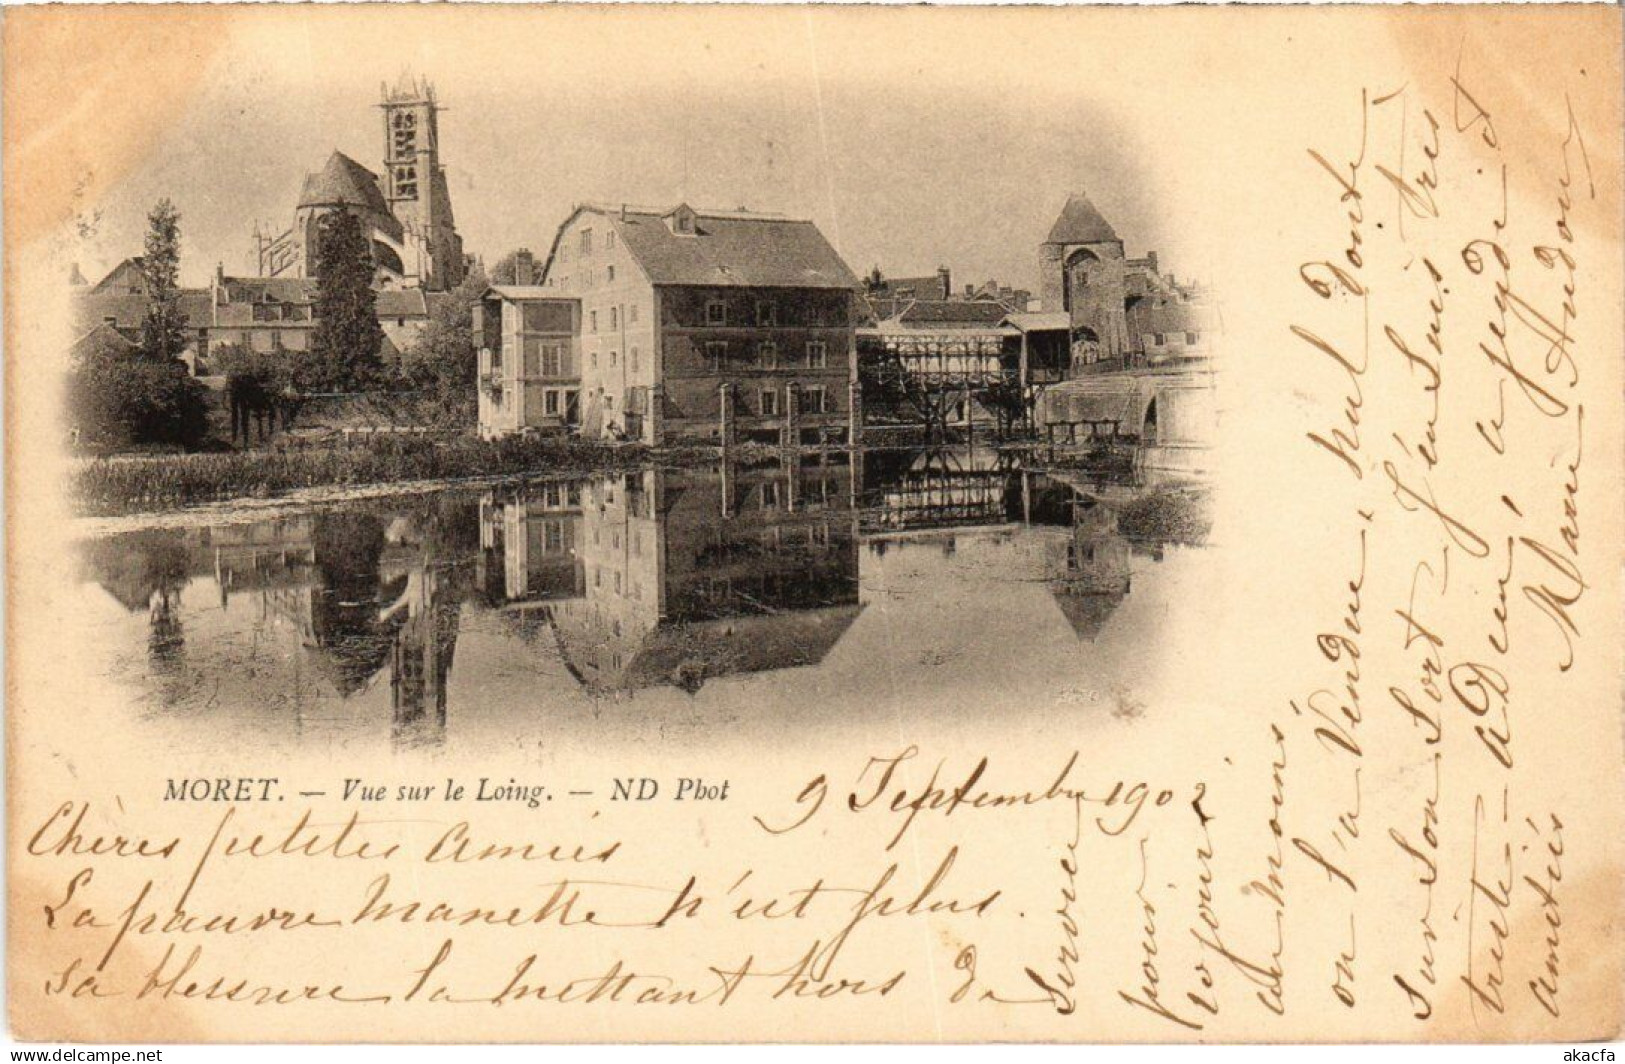 MORET. — Vue sur le Loing. — ND Phot
9 Septembre 1902
Chères petites amies
La pauvre Manette n'est plus.
Sa blessure la mettant hors de
Service
pour
20 jours
au moins,
on l'a Vendue, nul Doute
sur Son Sort J'en Suis très
triste – a Dieu, a jeudi
amitiés Marie
akacfa
www.delcampe.net